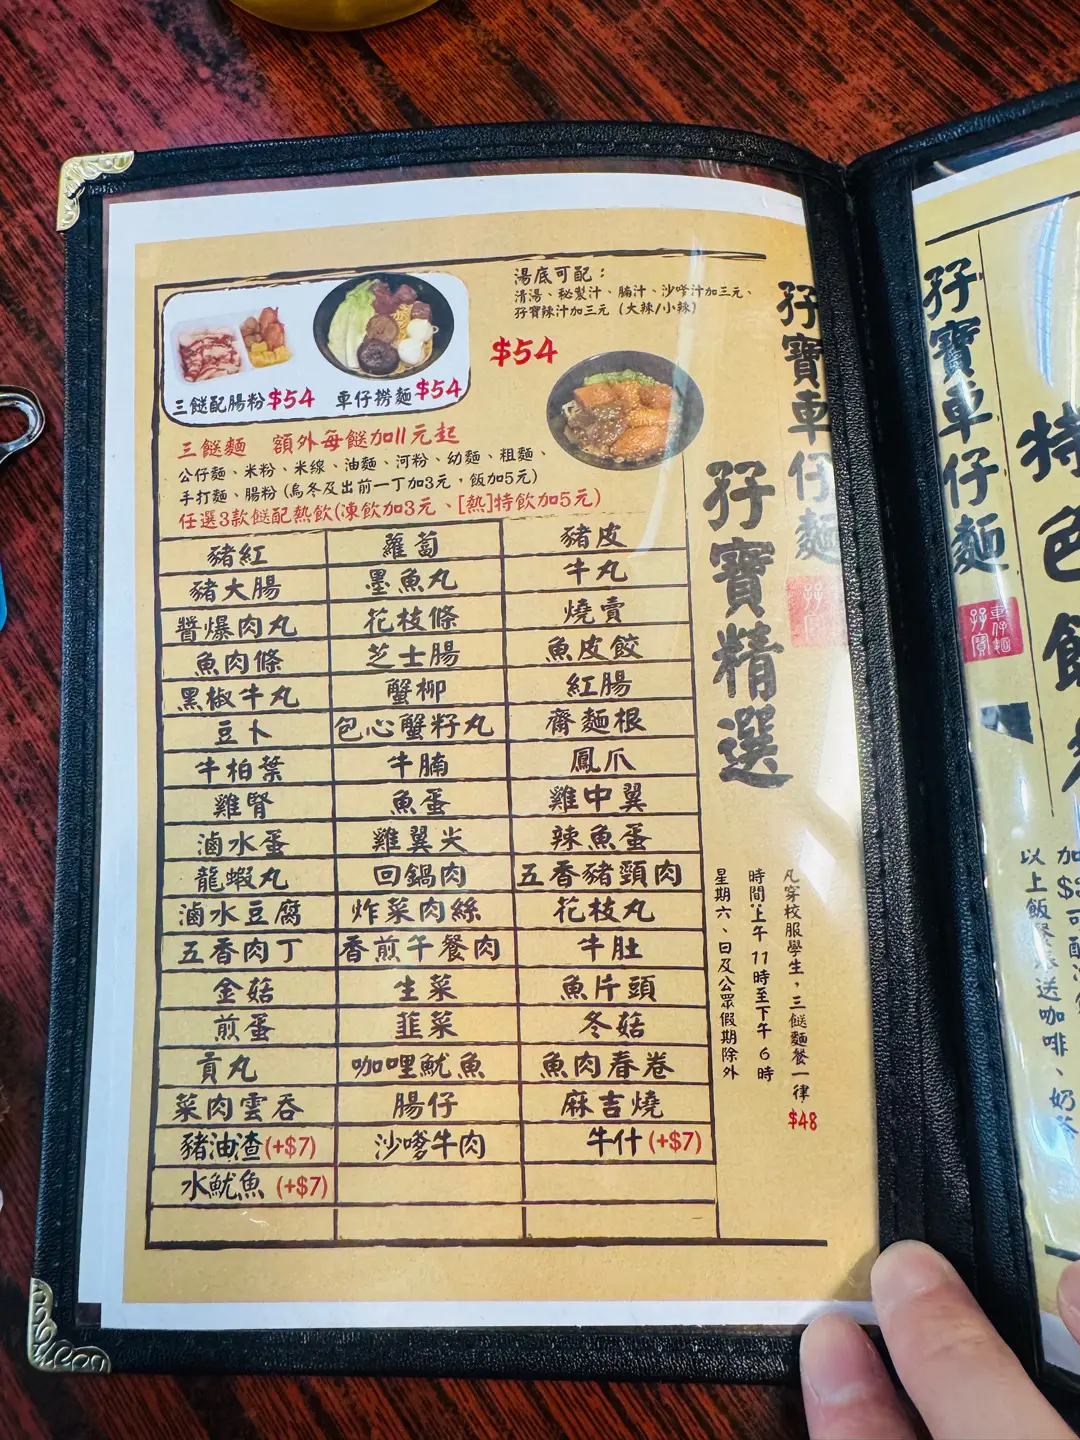 湯底可配：
清湯、秘製汁、腩汁、沙嗲汁加三元、
孖寶辣汁加三元（大辣/小辣）
$54
三餸配腸粉$54
車仔撈麵$54
三餸麵 額外每餸加11元起
公仔麵、米粉、米線、油麵、河粉、幼麵、粗麵、
手打麵、腸粉 (烏冬及出前一丁加3元，飯加5元)
任選3款餸配熱飲(凍飲加3元、[熱]特飲加5元)
豬紅 蘿蔔 豬皮
豬大腸 墨魚丸 牛丸
醬爆肉丸 花枝條 燒賣
魚肉條 芝士腸 魚皮餃
黑椒牛丸 蟹柳 紅腸
豆卜 包心蟹籽丸 齋麵根
牛柏葉 牛腩 鳳爪
雞腎 魚蛋 雞中翼
滷水蛋 雞翼尖 辣魚蛋
龍蝦丸 回鍋肉 五香豬頸肉
滷水豆腐 炸菜肉絲 花枝丸
五香肉丁 香煎午餐肉 牛肚
金菇 生菜 魚片頭
煎蛋 韮菜 冬菇
貢丸 咖哩魷魚 魚肉春卷
菜肉雲吞 腸仔 麻吉燒
豬油渣(+$7) 沙嗲牛肉 牛什(+$7)
水魷魚 (+$7)
孖寶車仔麵
孖寶精選
凡穿校服學生，三餸麵餐一律
$48
時間:上午11時至下午6時
星期六、日及公眾假期除外
孖寶車仔麵
車仔麵
孖寶
特色
以上飯
送咖啡、奶茶